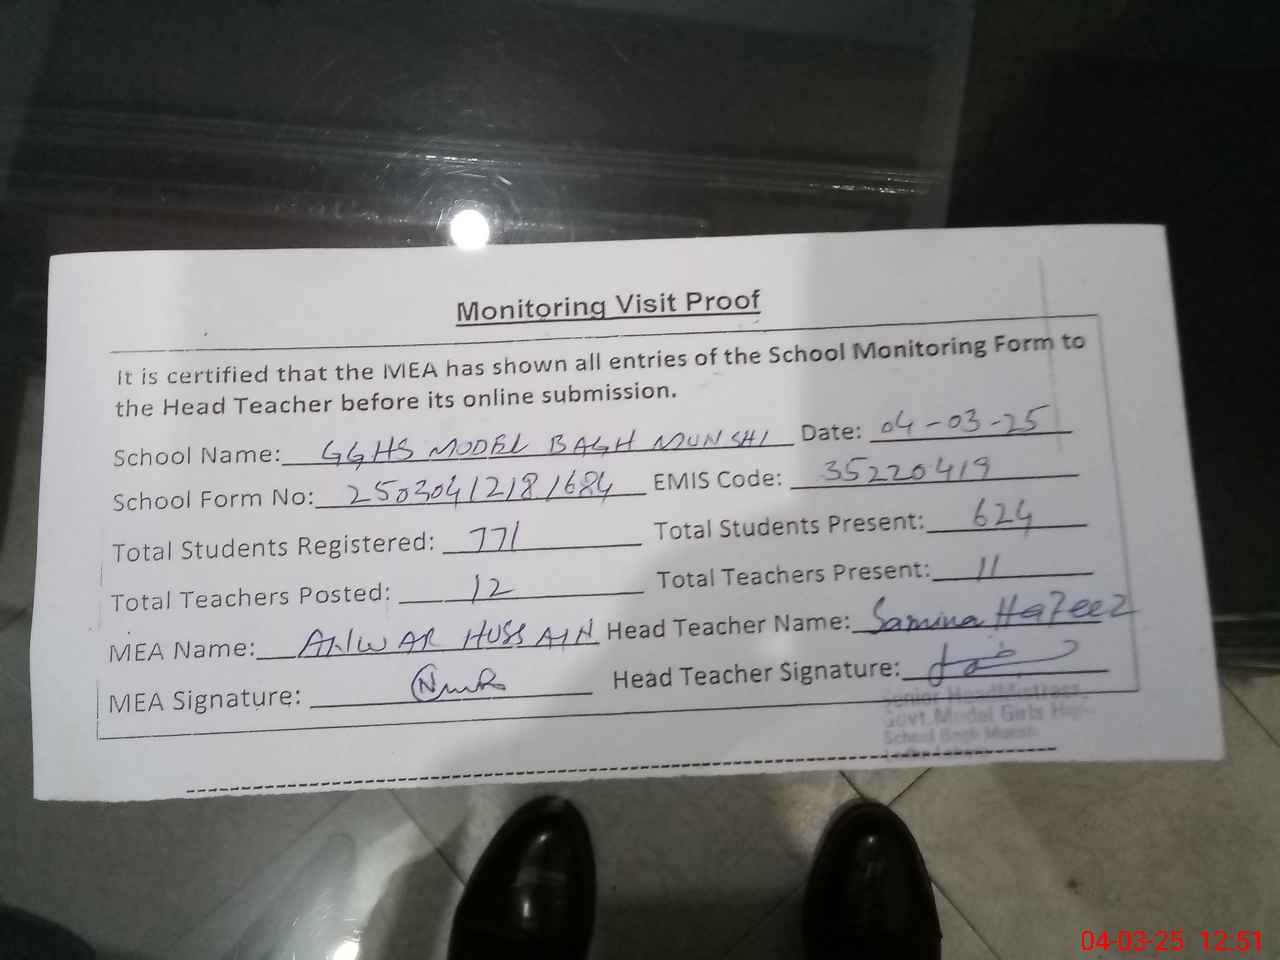 Monitoring Visit Proof
It is certified that the MEA has shown all entries of the School Monitoring Form to
the Head Teacher before its online submission.
School Name: GGHS MODEL BAGH MUNSHI Date: 04-03-25
School Form No: 25030412181684 EMIS Code: 35220419
Total Students Registered: 771 Total Students Present: 624
Total Teachers Posted: 12 Total Teachers Present: 11
MEA Name: ANWAR HUSSAIN Head Teacher Name: Samina Hafeez
MEA Signature: Head Teacher Signature:
Senior HeadMistress
Govt. Model Girls High
School Bagh Munshi
04-03-25 12:51